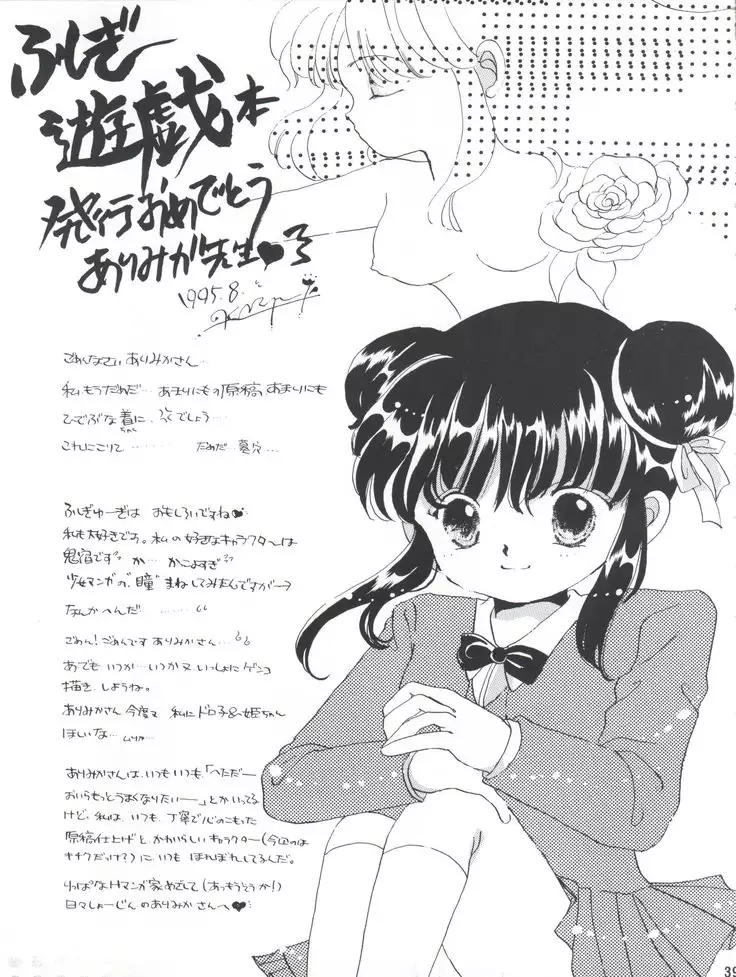 ふしぎ
遊戯本
発行おめでとう
ありみか先生♥ろ
1995.8.
ごめんなさい ありみかさん…
私もうだめだ… あまりにもの原稿、あまりにも
ひでぶな着に、 でしょう……
ちゃく
これにこりて …… だめだ…墓穴…
ふしぎゆーぎは おもしろいですね♥
私も大好きです。私の好きなキャラクターは
鬼宿です か… かこよすぎ
"少女マンガの、瞳"まねしてみたんですがーっ
なんかへんだ… ………
ごめん!ごめんです ありみかさん…
あでも いつか…いつか又 いっしょに ゲンコ
描き しようね。
ありみかさん 今度又 私にドロ子&姫ちゃん
ほしいな… ムリか…
ありみかさんは、いつもいつも、「へただー
おいらもっとうまくなりたいー」とかいってる
けど、私は、いつも、丁寧で心のこもった
原稿仕上げと、かわいらしいキャラクター(今回のは
キチクだっけ?)に いつも ほれぼれしてるんだ。
りっぱなHマンガ家めざして(あっもうそうか!)
日々しょーじんのありみかさんへ♥
39